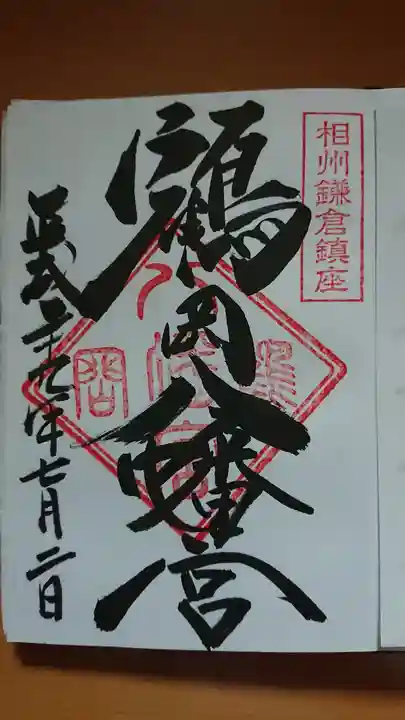 相州鎌倉鎮座
鶴岡八幡宮
平成二十九年七月二日